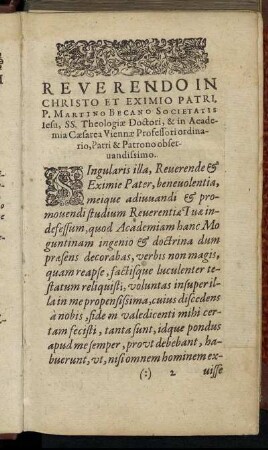 REVERENDO IN
CHRISTO ET EXIMIO PATRI.
P. MARTINO BECANO SOCIETATIS
Iesu, SS. Theologiæ Doctori, & in Acade-
mia Cæsarea Viennæ Professori ordina-
rio, Patri & Patrono obser-
uandissimo.
SIngularis illa, Reuerende &
Eximie Pater, beneuolentia,
meique adiuuandi & pro-
mouendi studium Reuerentiæ Tuæ in-
defessum, quod Academiam hanc Mo-
guntinam ingenio & doctrina dum
præsens decorabas, verbis non magis,
quam reapse, factisque luculenter te-
statum reliquisti, voluntas insuper il-
la in me propensissima, cuius discedens
à nobis, fidem valedicenti mihi cer-
tam fecisti, tanta sunt, idque pondus
apud me semper, prout debebant, ha-
buerunt, vt, nisi omnem hominem ex-
(:) 2 uisse